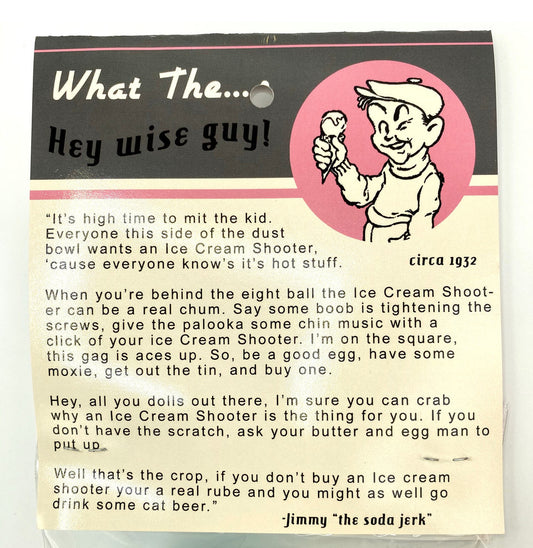 What The....
Hey wise guy!
“It's high time to mit the kid.
Everyone this side of the dust
bowl wants an Ice Cream Shooter,
'cause everyone know's it's hot stuff.
circa 1932
When you're behind the eight ball the Ice Cream Shoot-
er can be a real chum. Say some boob is tightening the
screws, give the palooka some chin music with a
click of your ice Cream Shooter. I'm on the square,
this gag is aces up. So, be a good egg, have some
moxie, get out the tin, and buy one.
Hey, all you dolls out there, I'm sure you can crab
why an Ice Cream Shooter is the thing for you. If you
don't have the scratch, ask your butter and egg man to
put up.
Well that's the crop, if you don't buy an Ice cream
shooter your a real rube and you might as well go
drink some cat beer.”
-Jimmy “the soda jerk”